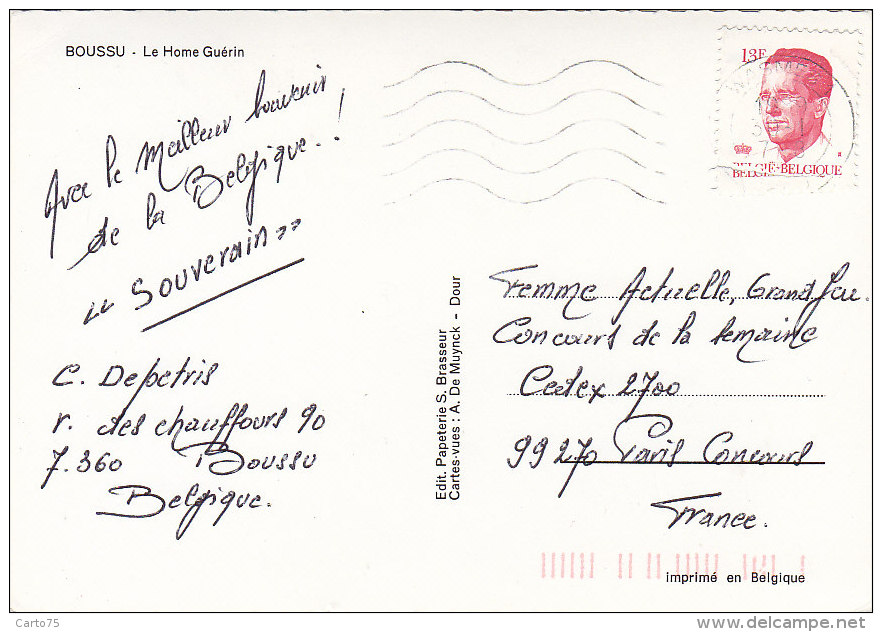 BOUSSU - Le Home Guérin
Avec le Meilleur Souvenir
de la Belgique.!
"Souverain"
C. Depetris
r. des chauffours 90
7.360 Boussu
Belgique.
Edit. Papeterie S. Brasseur
Cartes-vues : A. De Muynck - Dour
13F
BELGIË-BELGIQUE
Femme Actuelle, Grand Jeu
Concours de la Semaine
Cedex 2700
99270 Paris Concours
France.
imprimé en Belgique
Carto75
www.delcampe.net